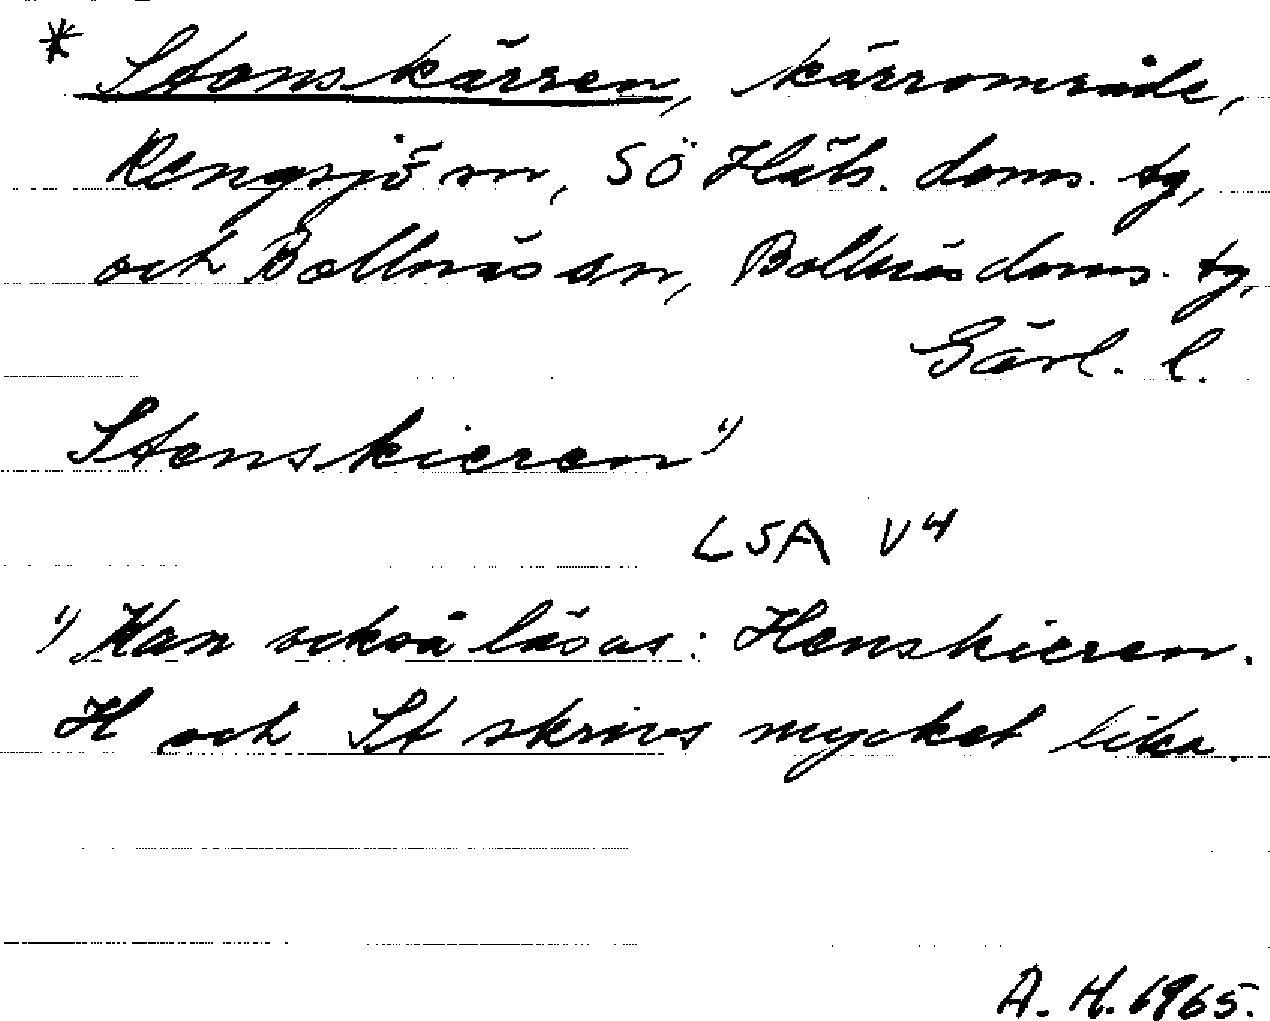 * Stenskärren, kärrområde,
Rengsjö sn, SÖ Häls. doms. tg,
och Bollnäs sn, Bollnäs doms. tg,
Gävl. l.
Stenskieren 1)
LSA V4
1) Kan också läsas: Henskieren.
H och St skrivs mycket lika.
A. H. 1965.